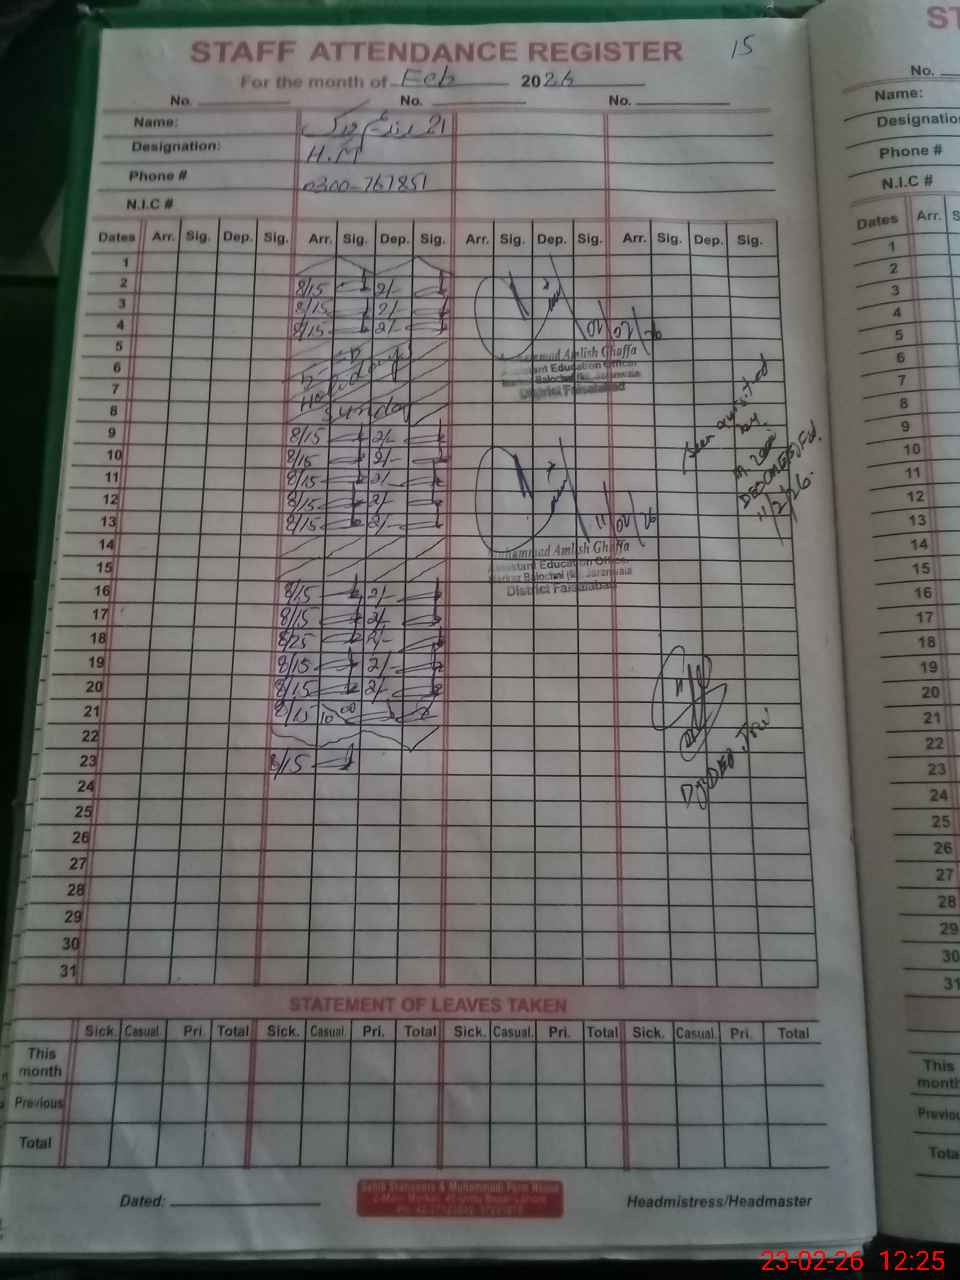 STAFF ATTENDANCE REGISTER
15
For the month of Feb 2026
No. No. No.
Name:
Designation: H.M
Phone # 0300-767851
N.I.C #
Dates Arr. Sig. Dep. Sig. Arr. Sig. Dep. Sig. Arr. Sig. Dep. Sig. Arr. Sig. Dep. Sig.
1
2 8/15 2/-
3 8/15 2/-
4 8/15 2/-
5
6
7 Holiday
8 Sunday
9 8/15 2/-
10 8/15 2/-
11 8/15 2/-
12 8/15 2/-
13 8/15 2/-
14
15
16 8/15 2/-
17 8/15 2/-
18 8/25 2/-
19 8/15 2/-
20 8/15 2/-
21 8/15 10 00
22
23 8/15
24
25
26
27
28
29
30
31
02/02/26
Muhammad Amlish Ghaffa
Assistant Education Officer
Markaz Balochni Jaranwala
District Faisalabad
11/02/26
Muhammad Amlish Ghaffa
Assistant Education Officer
Markaz Balochni Jaranwala
District Faisalabad
Seen
by
11/2/26.
STATEMENT OF LEAVES TAKEN
Sick. Casual. Pri. Total Sick. Casual. Pri. Total Sick. Casual. Pri. Total Sick. Casual. Pri. Total
This month
Previous
Total
Dated:
Headmistress/Headmaster
ST
No.
Name:
Designatio
Phone #
N.I.C #
Dates Arr. S
1
2
3
4
5
6
7
8
9
10
11
12
13
14
15
16
17
18
19
20
21
22
23
24
25
26
27
28
29
30
31
This
month
Previou
Tota
23-02-26 12:25